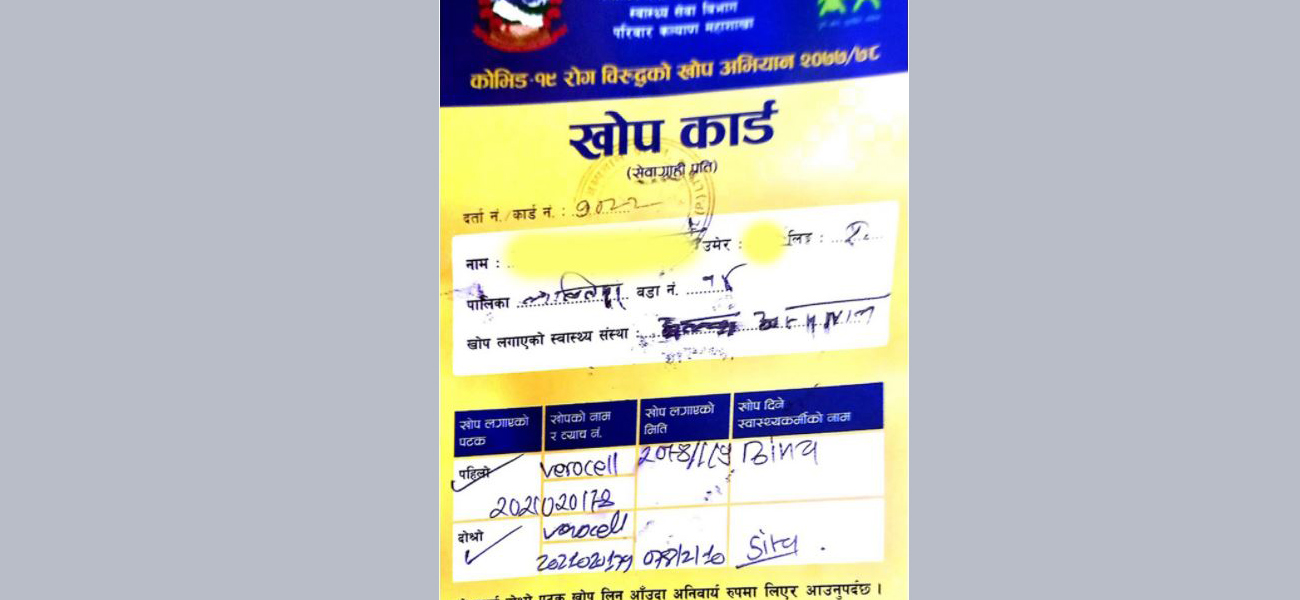 स्वास्थ्य सेवा विभाग
परिवार कल्याण महाशाखा
कोभिड-१९ रोग विरुद्धको खोप अभियान २०७७/७८
खोप कार्ड
(सेवाग्राही प्रति)
दर्ता नं./कार्ड नं. : 9022
नाम : उमेर : लिङ्ग :
पालिका ललितपुर वडा नं.
खोप लगाएको स्वास्थ्य संस्था :
खोप लगाएको पटक खोपको नाम र व्याच नं. खोप लगाएको मिति खोप दिने स्वास्थ्यकर्मीको नाम
पहिलो verocell Bina
2021020178
दोश्रो verocell
2021020179 078/2/10 Sita
दोश्रो पटक खोप लिन आउँदा अनिवार्य रुपमा लिएर आउनुपर्दछ ।